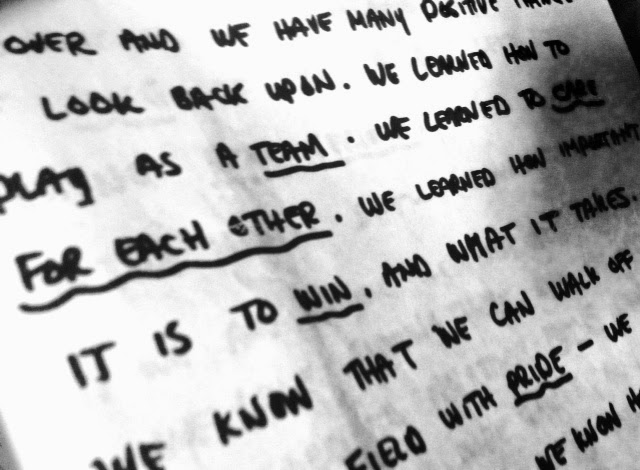 OVER AND WE HAVE MANY POSITIVE THINGS
LOOK BACK UPON. WE LEARNED HOW TO
PLAY AS A TEAM. WE LEARNED TO CARE
FOR EACH OTHER. WE LEARNED HOW IMPORTANT
IT IS TO WIN. AND WHAT IT TAKES.
WE KNOW THAT WE CAN WALK OFF
FIELD WITH PRIDE - WE
WE KNOW